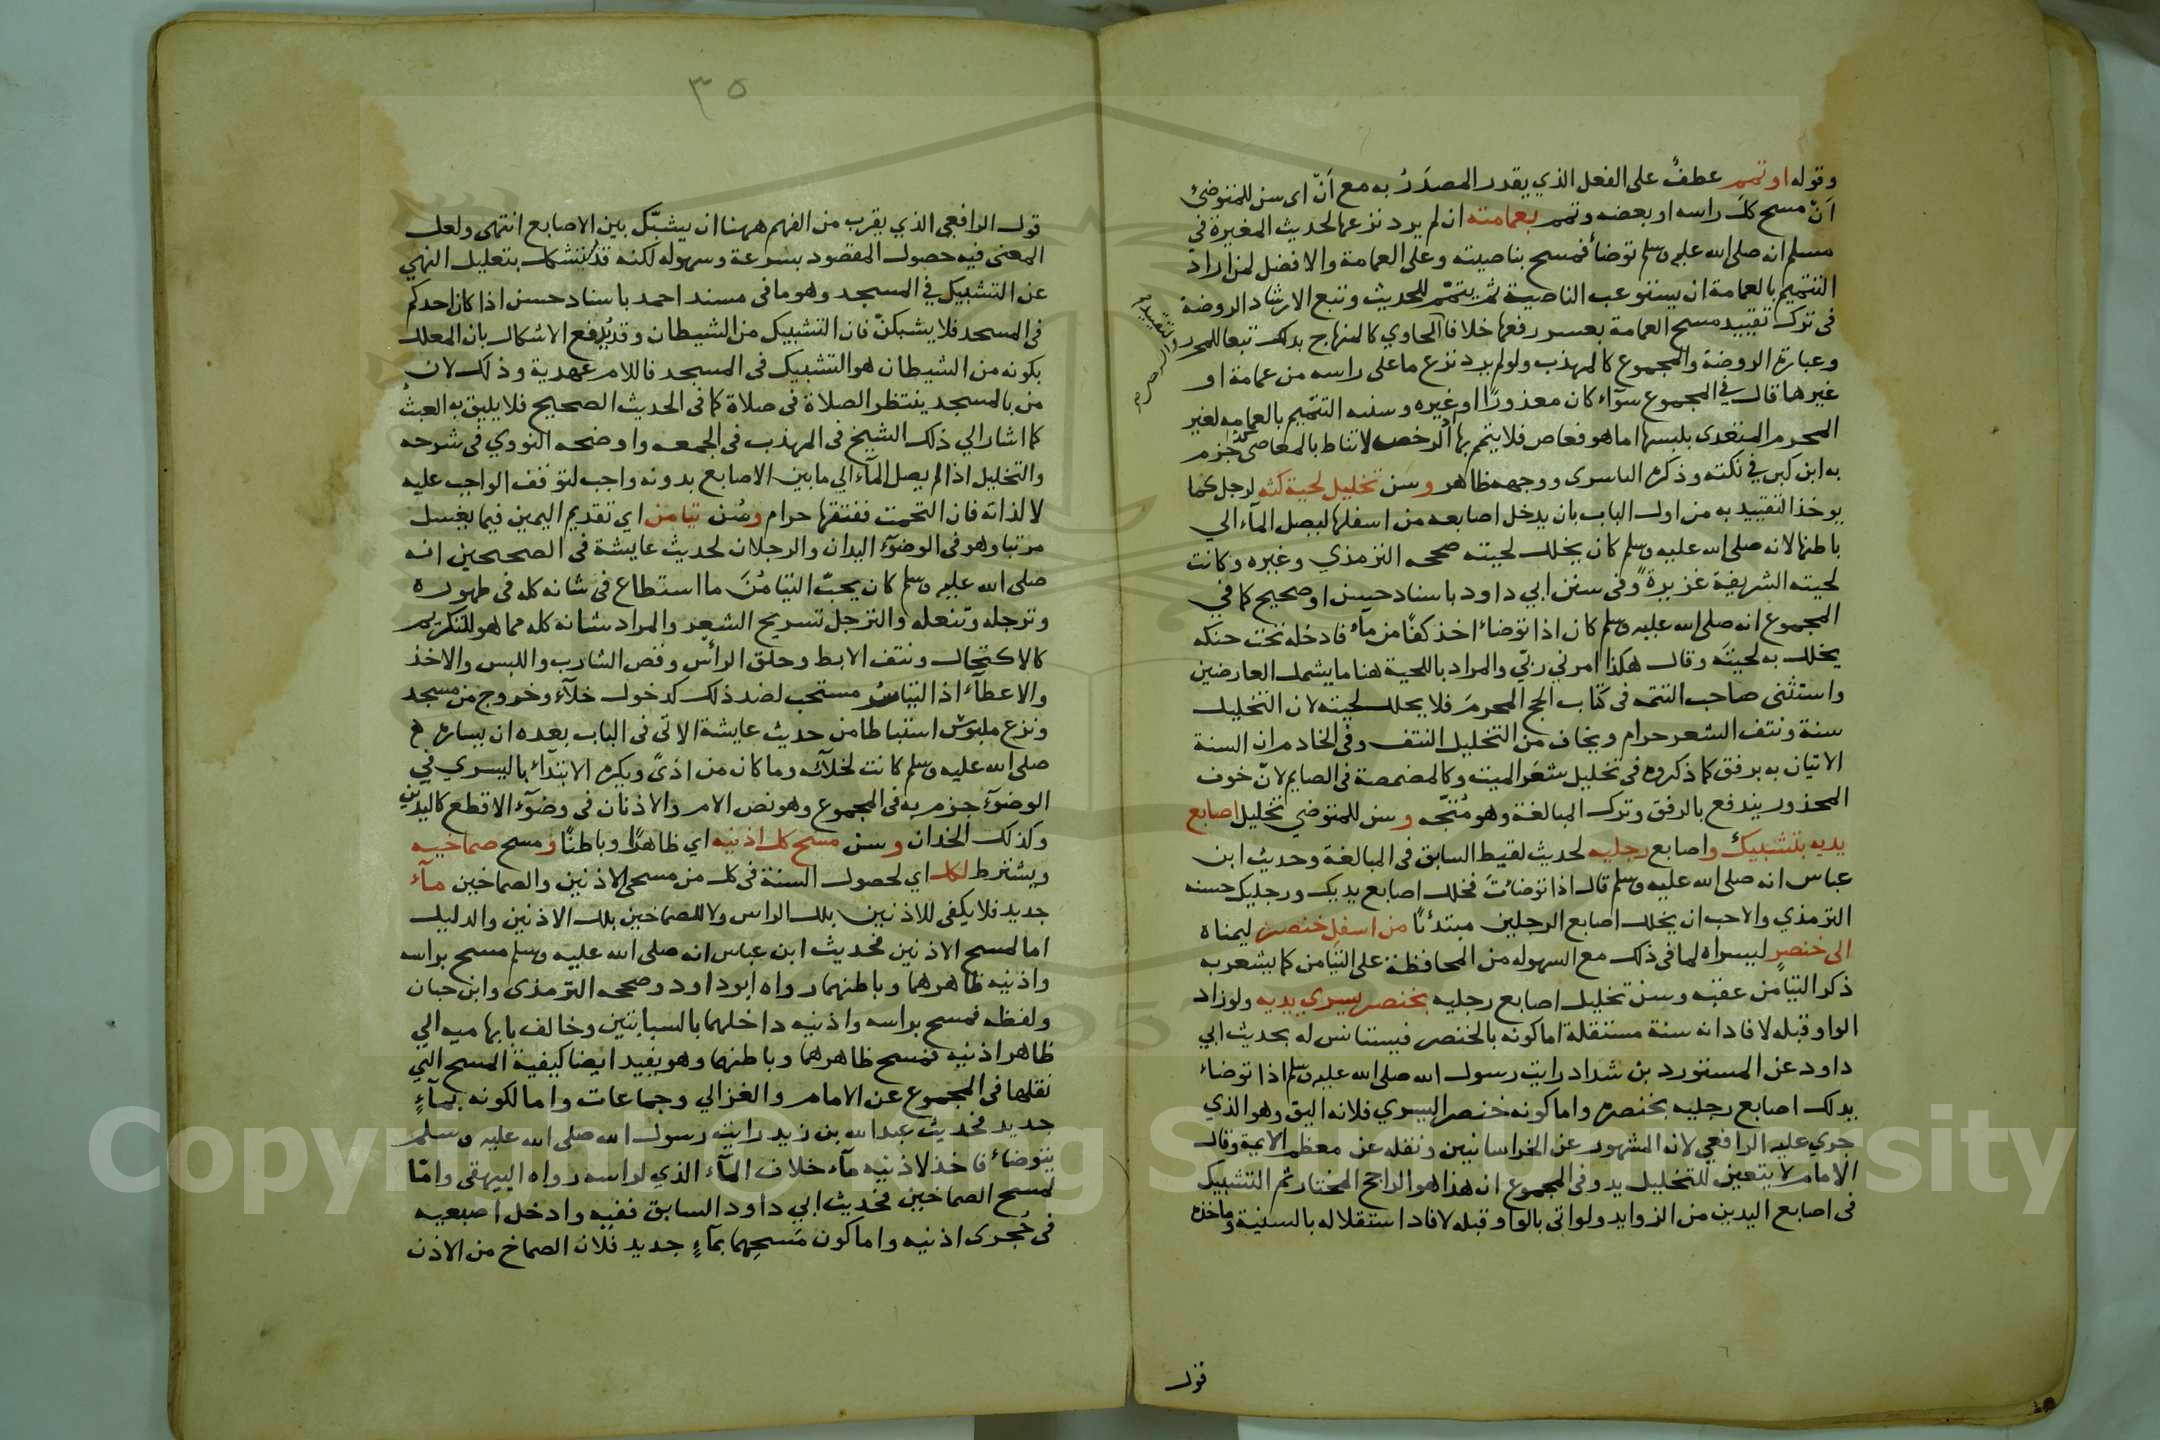 وقوله او تمم عطفٌ على الفعل الذي يقدر المصدَرُ به مع اَنّ اى سن للمتوضئ
اَنّ مسح كلَ راسه او بعضه وتمم بعمامته ان لم يرد نزعها لحديث المغيرة في
مسلم انه صلى الله عليه وسلم توضأ فمسح بناصيته وعلى العمامة والافضل لمن اراد
التتميم بالعمامة ان يستوعب الناصية ثم يتمّم للحديث وتبع الارشاد الروضة
فى ترك تقييد مسح العمامة بعسر رفعها خلافا لحاوي كالمنهاج بذلك تبعا للمحرر
وعبارة الروضة والمجموع كالمهذب ولو لم يرد نزع ما على راسه من عمامة او
غيرها قال في المجموع سوآء كان معذورًا او غيره وسنه التتميم بالعمامة لغير
المحرم المتعدى بلبسها اما هو فعاص فلا يتمم بها اذ الرخص لا تناط بالمعاصى جزم
به ابن كبن في نكته وذكره الناسرى ووجهه ظاهر وسَن تخليل لحية كثه لرجل كما
يوخذ التقييد به من اول الباب بان يدخل اصابعه من اسفلها ليصل المآء الي
باطنها لانه صلى الله عليه وسلم كان يخلل لحيته صححه الترمذي وغيره وكانت
لحيته الشريفة غزيرة وفى سنن ابي داود باسناد حسن او صحيح كما في
المجموع انه صلى الله عليه وسلم كان اذا توضأ اخذ كفًا من مآء فادخله تحت حنكه
يخلل به لحيته وقال هكذا امرني ربّي والمراد باللحية هنا ما يشمل العارضين
واستثنى صاحب التتمه فى كتاب الحج المحرمَ فلا يخلل لحيته لان التخليل
سنة ونتف الشعر حرام ويخاف من التخليل النتف وفى الخادم ان السنة
الاتيان به برفق كما ذكروه فى تخليل شعر الميت وكالمضمضة فى الصايم لانّ خوف
المحذور يندفع بالرفق وترك المبالغة وهو مُتّجه وسن للمتوضي تخليل اصابع
يديه بتشبيك واصابع رجليه لحديث لقيط السابق فى المبالغة وحديث ابن
عباس انه صلى الله عليه وسلم قال اذا توضأتَ فخلل اصابع يديك ورجليك حسنه
الترمذي والاحب ان يخلل اصابع الرجلين مبتدئًا من اسفل خنصر ليمناه
الى خنصرٍ ليسراه لما فى ذلك مع السهوله من المحافظة على التيامن كما يشعر به
ذكر التيامن عقبه وسن تخليل اصابع رجليه بخنصر يسري يديه ولو زاد
الواو قبله لافاد انه سنة مستقلة اما كونه بالخنصر فيستانس له بحديث ابي
داود عن المستورد بن شداد رايت رسول الله صلى الله عليه وسلم اذا توضأ
يدلك اصابع رجليه بخنصره واما كونه خنصر اليسري فلانه اليق وهو الذي
جري عليه الرافعي لانه المشهور عن الخراسانيين ونقله عن معظم الايمة وقال
الامام لا يتعين للتخليل يد وفى المجموع ان هذا هو الراجح المختار ثم التشبيك
فى اصابع اليدين من الزوايد ولو اتى بالواو قبله لافاد استقلاله بالسنية وماخذه
قول
٣٥
قول الرافعي الذي يقرب من الفهم ههنا ان يشبّك بين الاصابع انتهى ولعل
المعنى فيه حصول المقصود بسرعة وسهوله لكنه قد يُستشكل بتعليل النهي
عن التشبيك في المسجد وهو ما فى مسند احمد باسناد حسن اذا كان احدكم
فى المسجد فلا يشبكنّ فان التشبيك من الشيطان وقد يُدفع الاشكال بان المعلل
بكونه من الشيطان هو التشبيك فى المسجد فاللام عهدية وذلك لان
من بالمسجد ينتظر الصلاة فى صلاة كما فى الحديث الصحيح فلا يليق به العبثُ
كما اشار الي ذلك الشيخ فى المهذب فى الجمعه واوضحه النووي فى شرحه
والتخليل اذا لم يصل المآء الي ما بين الاصابع بدونه واجب لتوقف الواجب عليه
لا لذاته فان التحمت ففتقها حرام وسُن تيامن اي تقديم اليمين فيما يغسل
مرتبا وهو فى الوضوء اليدان والرجلان لحديث عايشة فى الصحيحين انه
صلى الله عليه وسلم كان يحبّ التيامُنَ ما استطاع فى شانه كله فى طهوره
وترجله وتنعله والترجل تسريح الشعر والمراد بشانه كله مما هو للتكريم
كالاكتحال ونتف الابط وحلق الراس وقص الشارب واللبس والاخذ
والاعطآء اذ التياسُر مستحب لضد ذلك كدخول خلآء وخروج من مسجد
ونزع ملبوش استنباطا من حديث عايشة الاتى فى الباب بعده ان يساره
صلى الله عليه وسلم كانت لخلآئه وما كان من اذىً ويكره الابتدآء باليسري في
الوضوء جزم به فى المجموع وهو نص الام والاذنان فى وضوء الاقطع كاليدين
وكذلك الخدان وسن مسح كل اذنيه اي ظاهرًا وباطنًا ومسح صماخيه
ويشترط لكل اي لحصول السنة فى كل من مسحي الاذنين والصماخين مآء
جديد فلا يكفى للاذنين بلل الراس ولا للصماخين بلل الاذنين والدليل
اما لمسح الاذنين فحديث ابن عباس انه صلى الله عليه وسلم مسح براسه
واذنيه ظاهرهما وباطنهما رواه ابو داود وصححه الترمذى وابن حبان
ولفظه فمسح براسه واذنيه داخلهما بالسبابتين وخالف بابهاميه الي
ظاهر اذنيه فمسح ظاهرهما وباطنهما وهو يفيد ايضا كيفية المسح التي
نقلها فى المجموع عن الامام والغزالي وجماعات واما لكونه بمآءٍ
جديد فحديث عبد الله بن زيد رايت رسول الله صلى الله عليه وسلم
يتوضأ فاخذ لاذنيه مآء خلاف المآء الذي لراسه رواه البيهقى وامّا
لمسح الصماخين فحديث ابي داود السابق ففيه وادخل اصبعيه
فى حُجرى اذنيه واما كون مَسحِهما بمآءٍ جديد فلان الصماخ من الاذن
Copyright © King Saud University